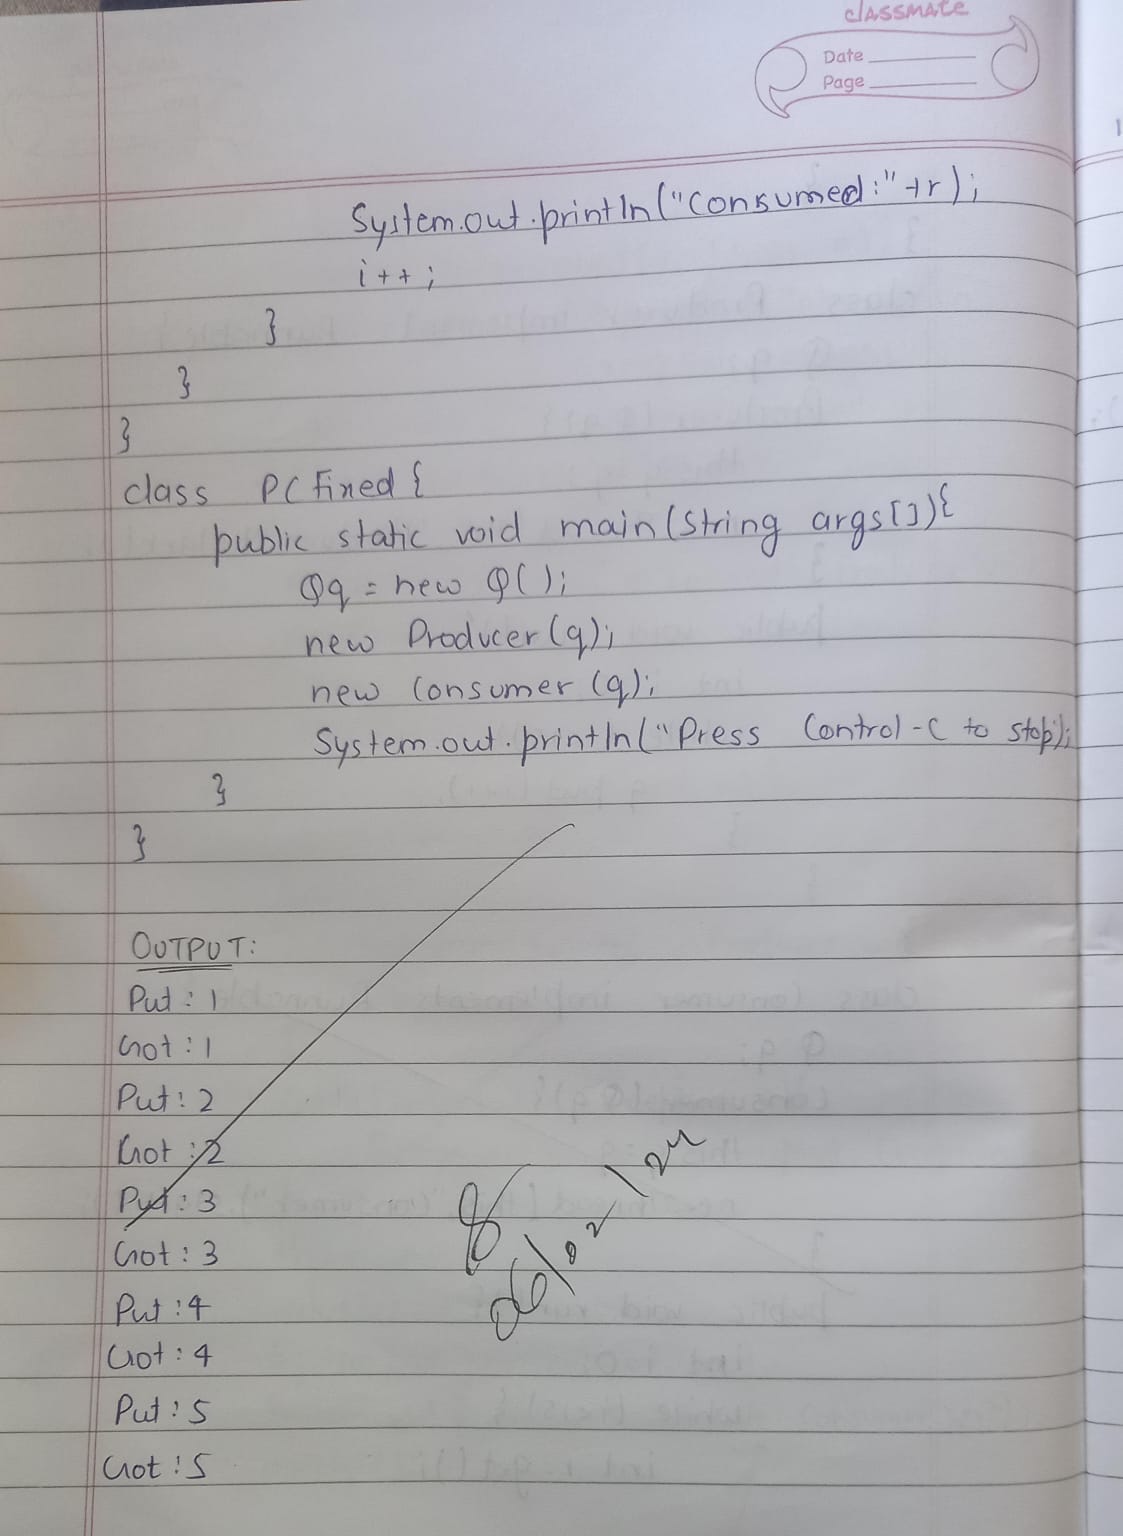 classmate
Date
Page
System.out.println("Consumed:"+r);
i++;
}
}
}
class PCFixed {
public static void main(String args[]){
Q q = new Q();
new Producer(q);
new Consumer(q);
System.out.println("Press Control-C to stop");
}
}
OUTPUT:
Put : 1
Got : 1
Put : 2
Got : 2
Put : 3
Got : 3
Put : 4
Got : 4
Put : 5
Got : 5